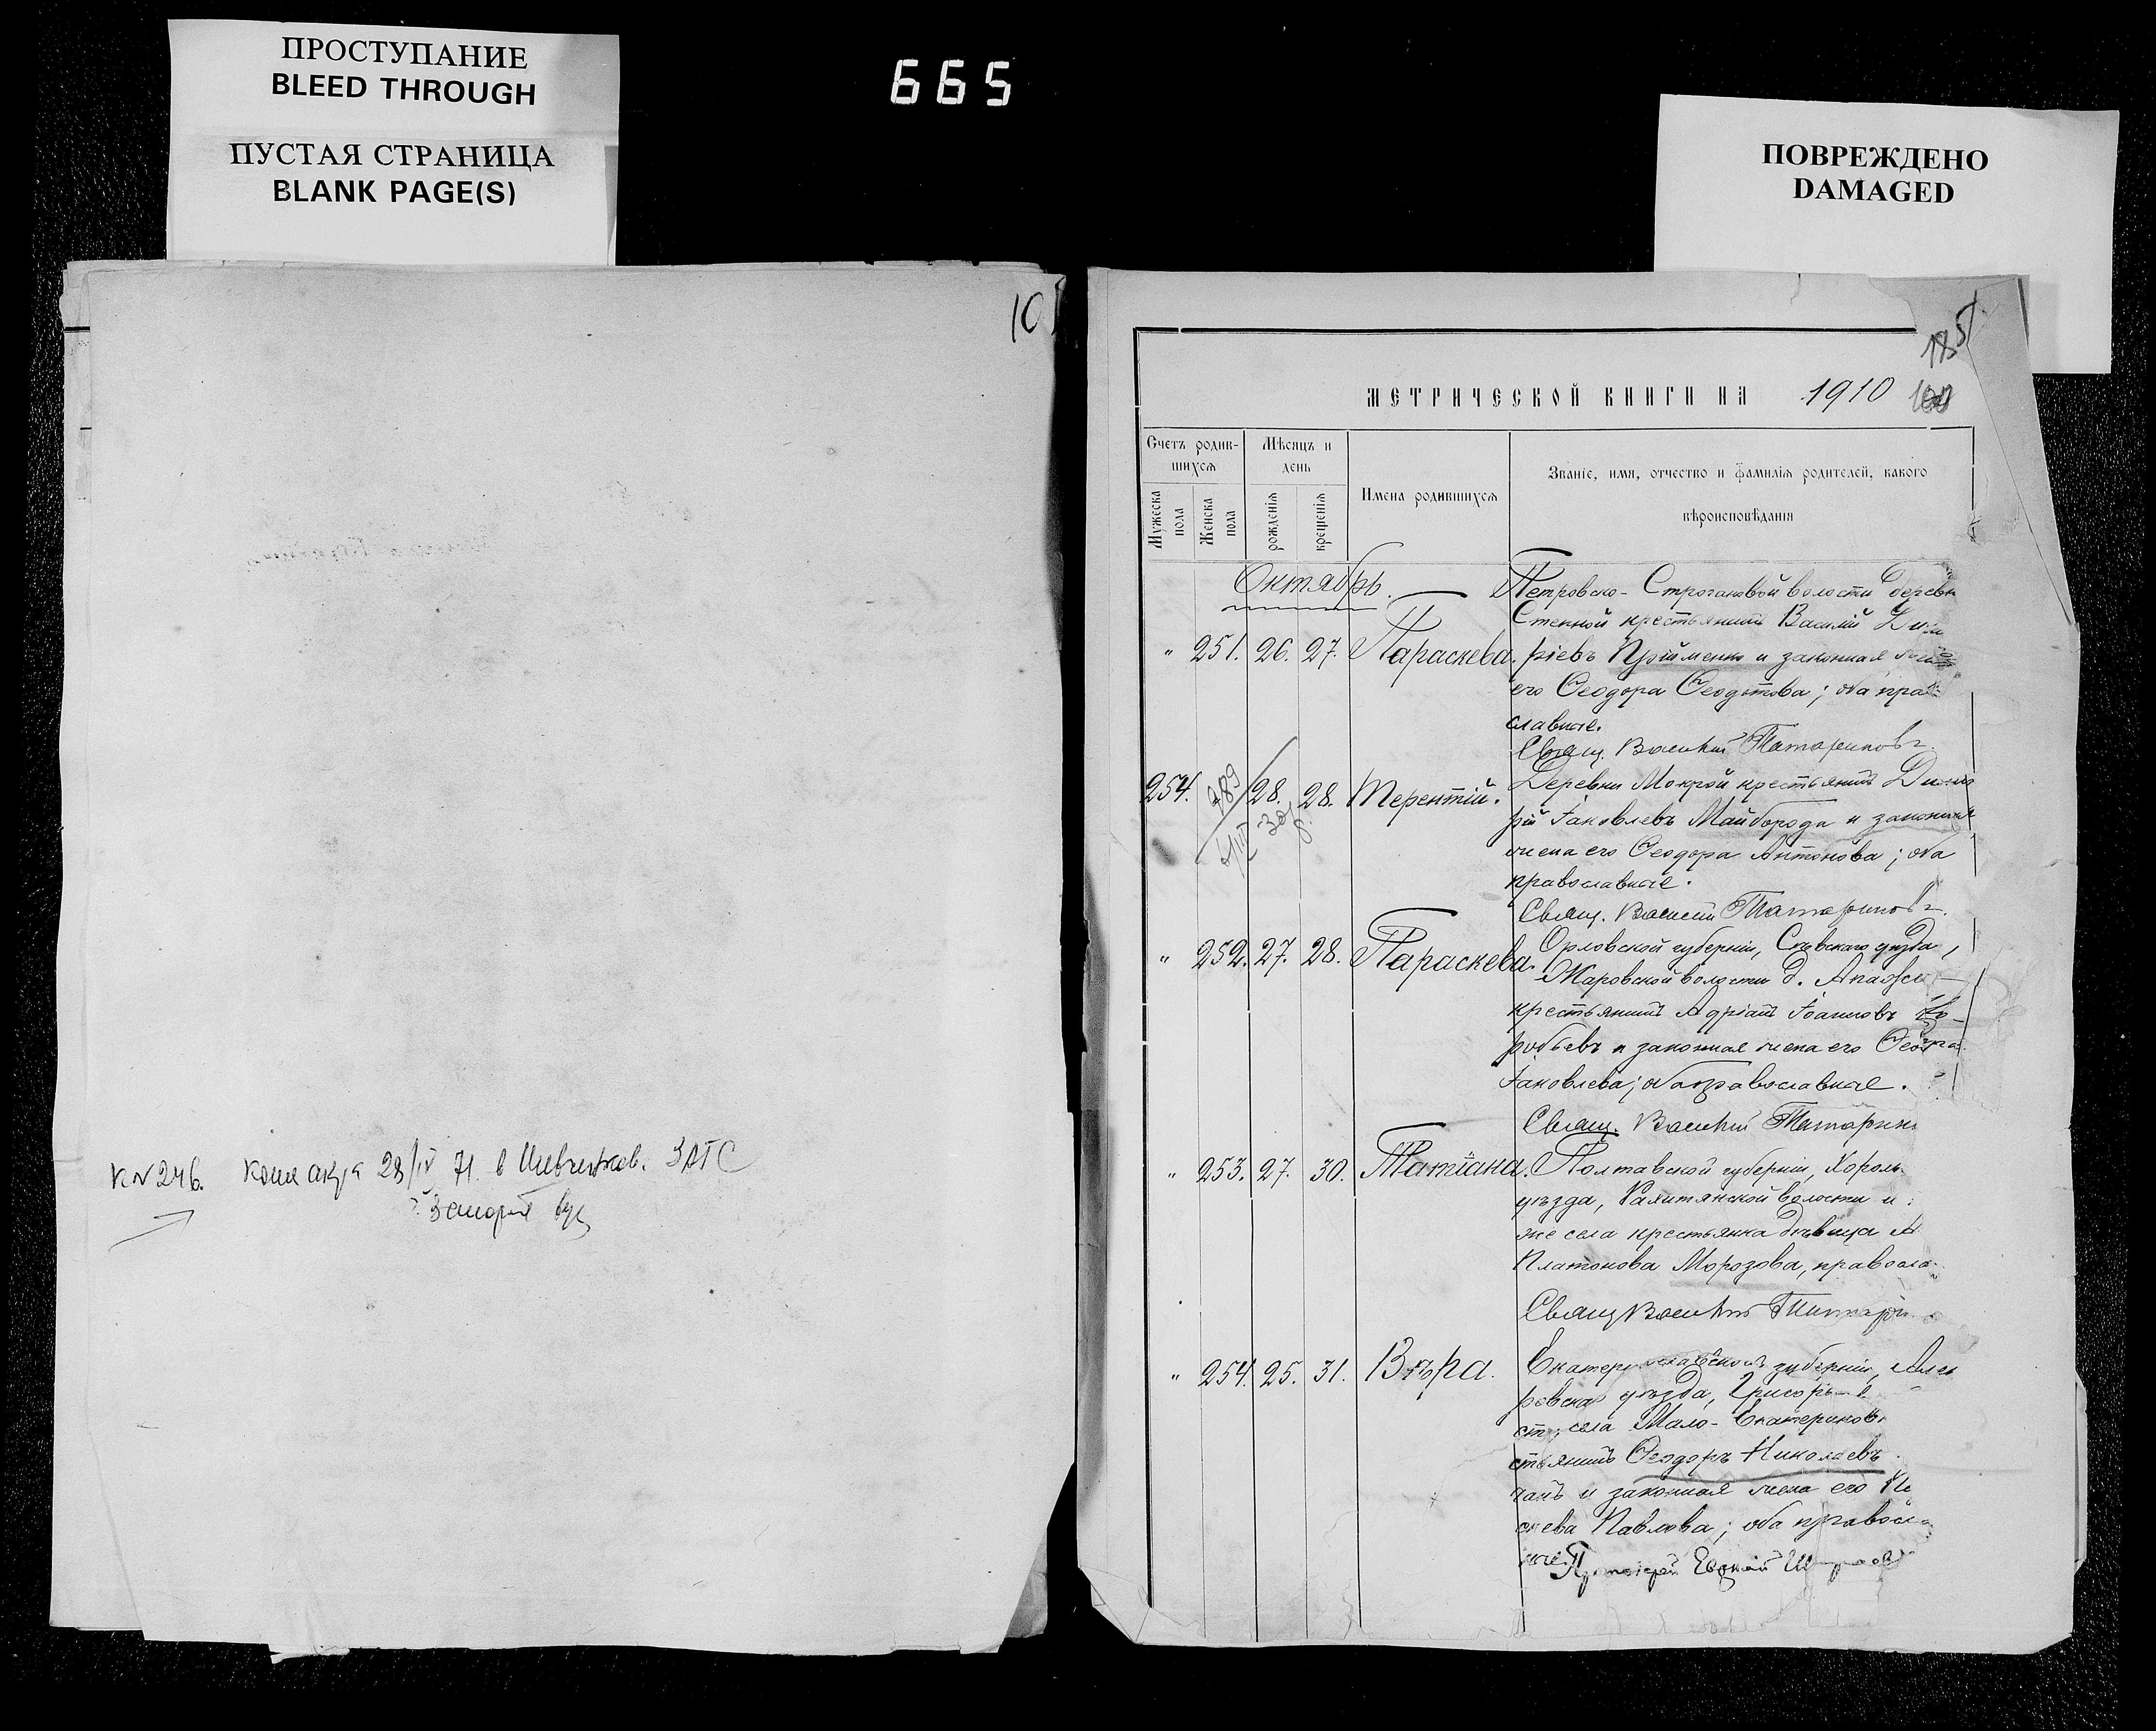 ПРОСТУПАНИЕ
BLEED THROUGH
ПУСТАЯ СТРАНИЦА
BLANK PAGE(S)
665
ПОВРЕЖДЕНО
DAMAGED
10
К N 246. Копия 28/IV 71. в ЗАГС
185
МЕТРИЧЕСКОЙ КНИГИ НА 1910
Счетъ родив-
шихся
Мѣсяцъ и
день
Имена родившихся
Званіе, имя, отчество и фамилія родителей, какого
вѣроисповѣданія
Мужеска
пола
Женска
пола
рожденія
крещенія
Октябрь.
Петровско-Строгановой волости деревн
Степной крестьянинъ Василій
" 251. 26. 27. Параскева. ріевъ Прійменко и законная
его Ѳеодора Ѳеодотова; оба пра
славные.
Свящ. Василій Татариновъ.
254. 28. 28. Терентій. Деревни Мокрой крестьянинъ Димит
рій Іаковлевъ Майборода и законная
жена его Ѳеодора Антонова; оба
православные.
Свящ. Василій Татариновъ.
" 252. 27. 28. Параскева. Орловской губерніи, Сѣвскаго уѣзда,
Жаровской волости д.
крестьянинъ Адріанъ Іоанновъ Во-
робьевъ и законная жена его
Іаковлева; оба православные.
Свящ. Василій Татарин
" 253. 27. 30. Татіана. Полтавской губерніи, Хороль
уѣзда, волости и
же села крестьянка дѣвица
Платонова Морозова, правосла
Свящ Василій Татари
" 254. 25. 31. Вѣра. Екатеринославской губерніи, Алек
ровска уѣзда, Григорь
ст, села Мало-Екатеринов
стьянинъ Ѳеодоръ Николаевъ
чанъ и законная жена его
скева Павлова; оба правосл
ные
Протоіерей